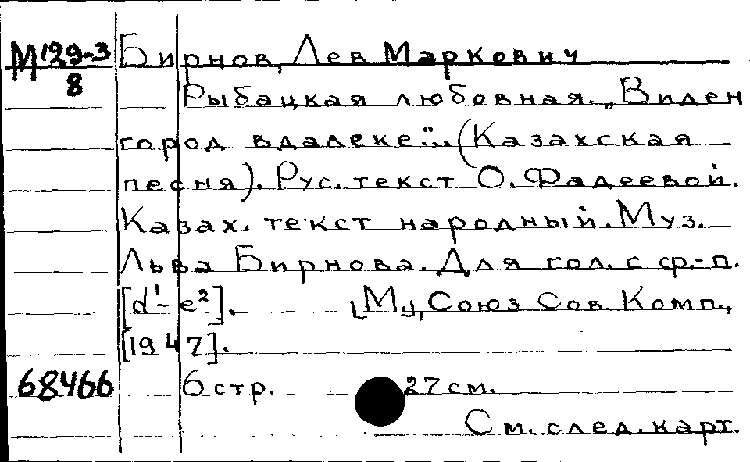 М 129-3 Бирнов, Лев Маркович
8
Рыбацкая любовная. „Виден
город вдалеке"... (Казахская
песня). Рус. текст О. Фадеевой.
Казах. текст народный. Муз.
Льва Бирнова. Для гол. с ф.-п.
[d¹-e²]. [М], Союз Сов Комп.,
[1947].
68466 6 стр. 27 см.
См. след. карт.